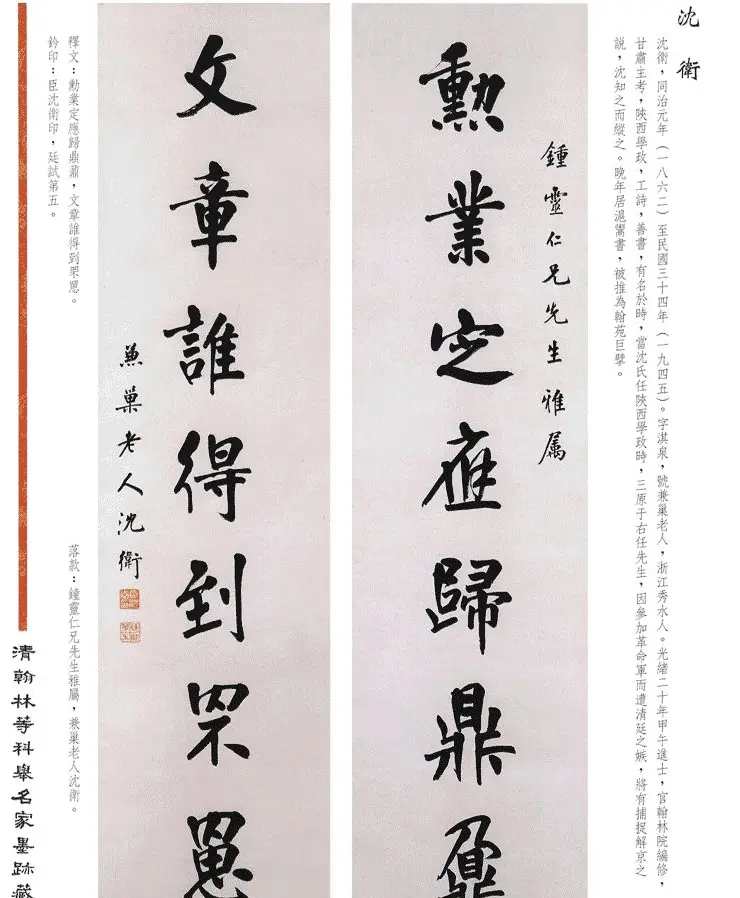 沈 衛
沈衛，同治元年（一八六二）至民國三十四年（一九四五）。字淇泉，號兼巢老人，浙江秀水人。光緒二十年甲午進士，官翰林院編修，
甘肅主考，陝西學政，工詩，善書，有名於時，當沈氏任陝西學政時，三原于右任先生，因參加革命軍而遭清廷之嫉，將有捕捉解京之
説，沈知之而縱之。晚年居滬鬻書，被推為翰苑巨擘。
鍾靈仁兄先生雅属
勳業定應歸鼎鼐
文章誰得到罘罳
兼巢老人沈衛
釋文：勳業定應歸鼎鼐，文章誰得到罘罳。
鈐印：臣沈衛印，廷試第五。
落款：鐘靈仁兄先生雅屬，兼巢老人沈衛。
清翰林等科舉名家墨跡藏